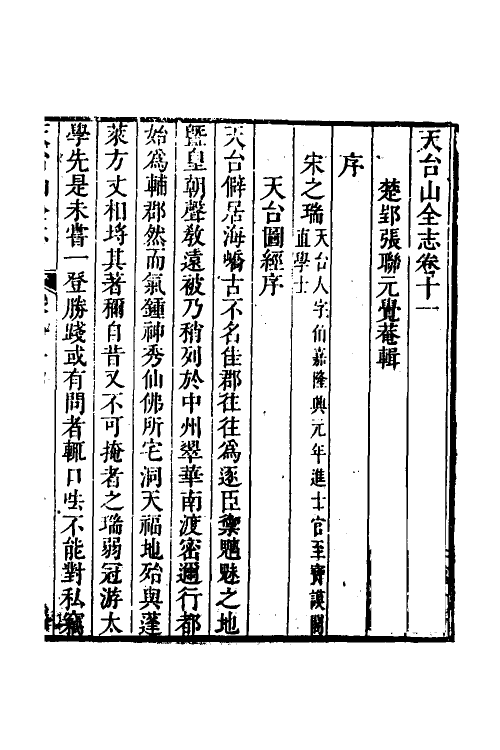 天台山全志卷十一
楚郢張聯元覺菴輯
序
宋之瑞天台人字伯嘉隆興元年進士官至寶謨閣
直學士
天台圖經序
天台僻居海嶠古不名佳郡往往爲逐臣禦魑魅之地
曁皇朝聲敎遠被乃稍列於中州翠華南渡密邇行都
始爲輔郡然而氣鍾神秀仙佛所宅洞天福地殆與蓬
萊方丈相埒其著稱自昔又不可掩者之瑞弱冠游太
學先是未嘗一登勝踐或有問者輒口呿不能對私竊